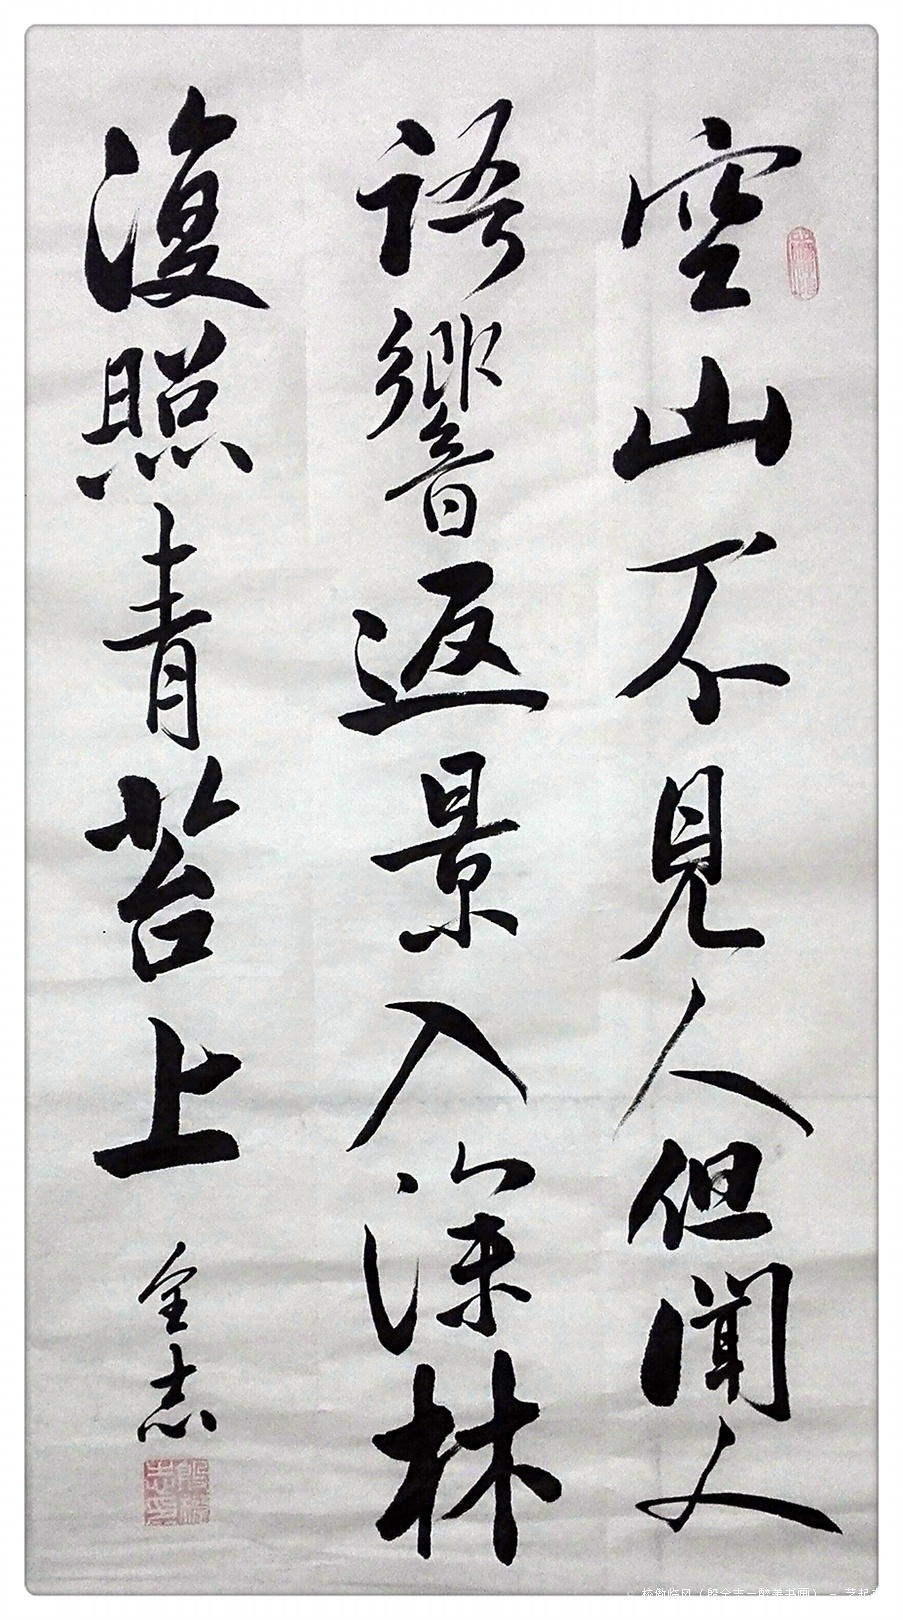 空山不見人但聞人
語響返景入深林
復照青苔上
全志